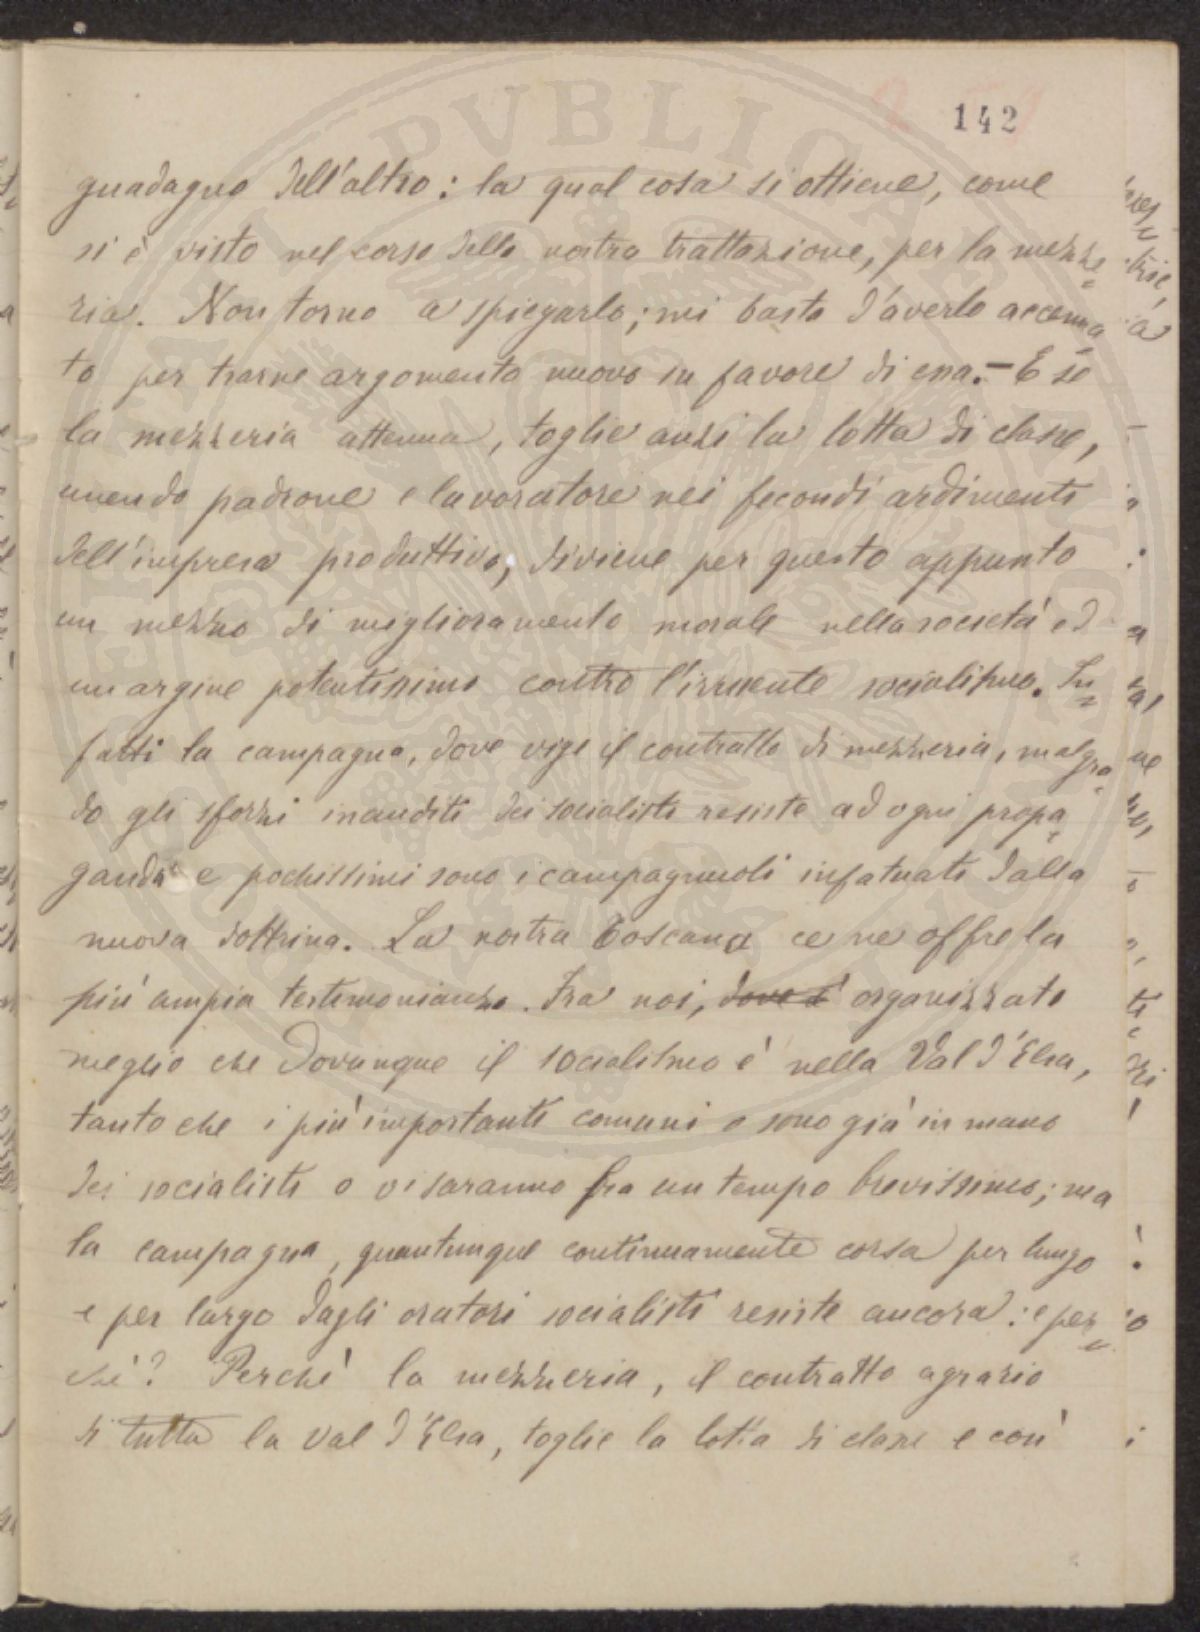 142
guadagno dell'altro: la qual cosa si ottiene, come
si è visto nel corso della nostra trattazione, per la mezze=
ria. Non torno a spiegarlo; mi basta d'averlo accenna=
to per trarne argomento nuovo in favore di essa. — E se
la mezzeria attenua, toglie anzi la lotta di classe,
unendo padrone e lavoratore nei fecondi ardimenti
dell'impresa produttiva, diviene per questo appunto
un mezzo di miglioramento morale nella società ed
un argine potentissimo contro l'irruente socialismo. In=
fatti la campagna, dove vige il contratto di mezzeria, malgra=
do gli sforzi inauditi dei socialisti resiste ad ogni propa=
ganda e pochissimi sono i campagnuoli infatuati dalla
nuova dottrina. La nostra Toscana ce ne offre la
più ampia testimonianza. Fra noi, dove è organizzato
meglio che dovunque il socialismo è nella Val d'Elsa,
tanto che i più importanti comuni o sono già in mano
dei socialisti o vi saranno fra un tempo brevissimo; ma
la campagna, quantunque continuamente corsa per lungo
e per largo dagli oratori socialisti resiste ancora: e per=
chè? Perchè la mezzeria, il contratto agrario
di tutta la Val d'Elsa, toglie la lotta di classe e così